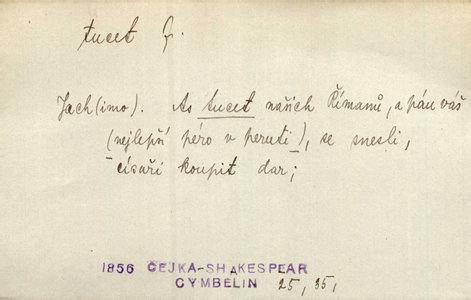 tucet f.
Jach(imo). As tucet našich Římanů, a pán váš
(nejlepší péro v peruti), se snesli,
císaři koupit dar;
1856 ČEJKA-SHAKESPEAR
CYMBELIN 25, 35,